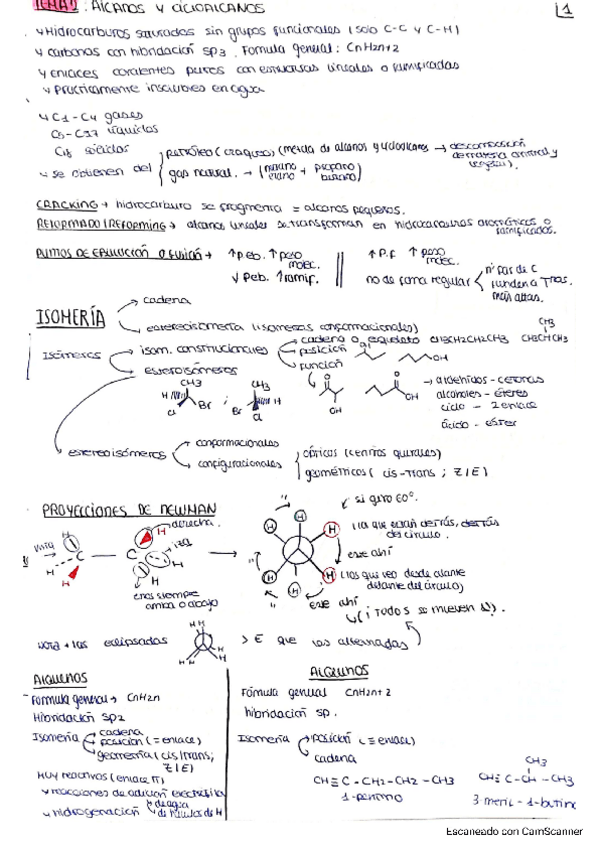 TEMA 1: Alcanos y cicloalcanos
1
Hidrocarburos saturados sin grupos funcionales (solo C-C y C-H)
carbonos con hibridación sp3. Fórmula general: CnH2n+2
enlaces covalentes puros con estructuras lineales o ramificadas
Prácticamente insolubles en agua
C1 - C4 gases
C5 - C17 líquidos
C18 sólidos
se obtienen del
petróleo (craqueo) (mezcla de alcanos y cicloalcanos → descomposición de materia animal y vegetal).
gas natural → (metano etano + propano butano)
CRACKING → hidrocarburo se fragmenta = alcanos pequeños.
REFORMADO / REFORMING → alcanos lineales se transforman en hidrocarburos aromáticos o ramificados.
PUNTOS DE EBULLICIÓN O FUSIÓN →
↑ Peb. ↑ peso molec.
↓ Peb. ↑ ramif.
↑ P.f ↑ peso molec.
no de forma regular
nº par de C funden a Tras. más altas.
ISOMERÍA
cadena
estereoisomería (isómeros conformacionales)
Isómeros
isom. constitucionales
cadena o esqueleto CH3CH2CH2CH3
CH3
CH3CHCH3
posición
OH
función
O
OH
O
OH
→ aldehídos - cetonas
alcoholes - éteres
ciclo - 2 enlace
Ácido - éster
estereoisómeros
CH3
H
Cl
Br
;
CH3
Br
Cl
H
estereoisómeros
conformacionales
configuracionales
ópticos (centros quirales)
geométricos (cis-trans; Z/E)
PROYECCIONES DE NEWMAN
mira
H
H
C
C
H
derecha.
izq
H
H
estos siempre arriba o abajo
H
H
H
H
H
H
si giro 60º.
(la que están detrás, detrás del círculo.
ese ahí
(los que veo desde alante delante del círculo)
ese ahí
(¡Todos se mueven!).
nota + las eclipsadas
H H
H
H
H
> E que las alternadas
ALQUENOS
Fórmula general → CnH2n
Hibridación sp2
Isomería
cadena
posición (= enlace)
geometría (cis/trans; Z/E)
Muy reactivos (enlace π)
reacciones de adición electrófila
de agua
de haluros de H
hidrogenación
ALQUINOS
Fórmula general CnH2n+2
hibridación sp.
Isomería
posición (≡ enlace)
cadena
CH≡C-CH2-CH2-CH3
1-pentino
CH3
CH≡C-CH-CH3
3 metil-1-butino
Escaneado con CamScanner